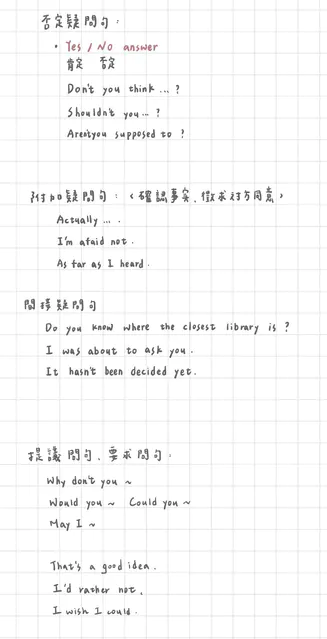 否定疑問句：
• Yes / No answer
肯定 否定
Don't you think ... ?
Shouldn't you ... ?
Aren't you supposed to ?
附加疑問句：〈確認事實、徵求對方同意〉
Actually ... .
I'm afaid not.
As far as I heard.
間接疑問句
Do you know where the closest library is ?
I was about to ask you.
It hasn't been decided yet.
提議問句、要求問句：
Why don't you ~
Would you ~ Could you ~
May I ~
That's a good idea.
I'd rather not.
I wish I could.